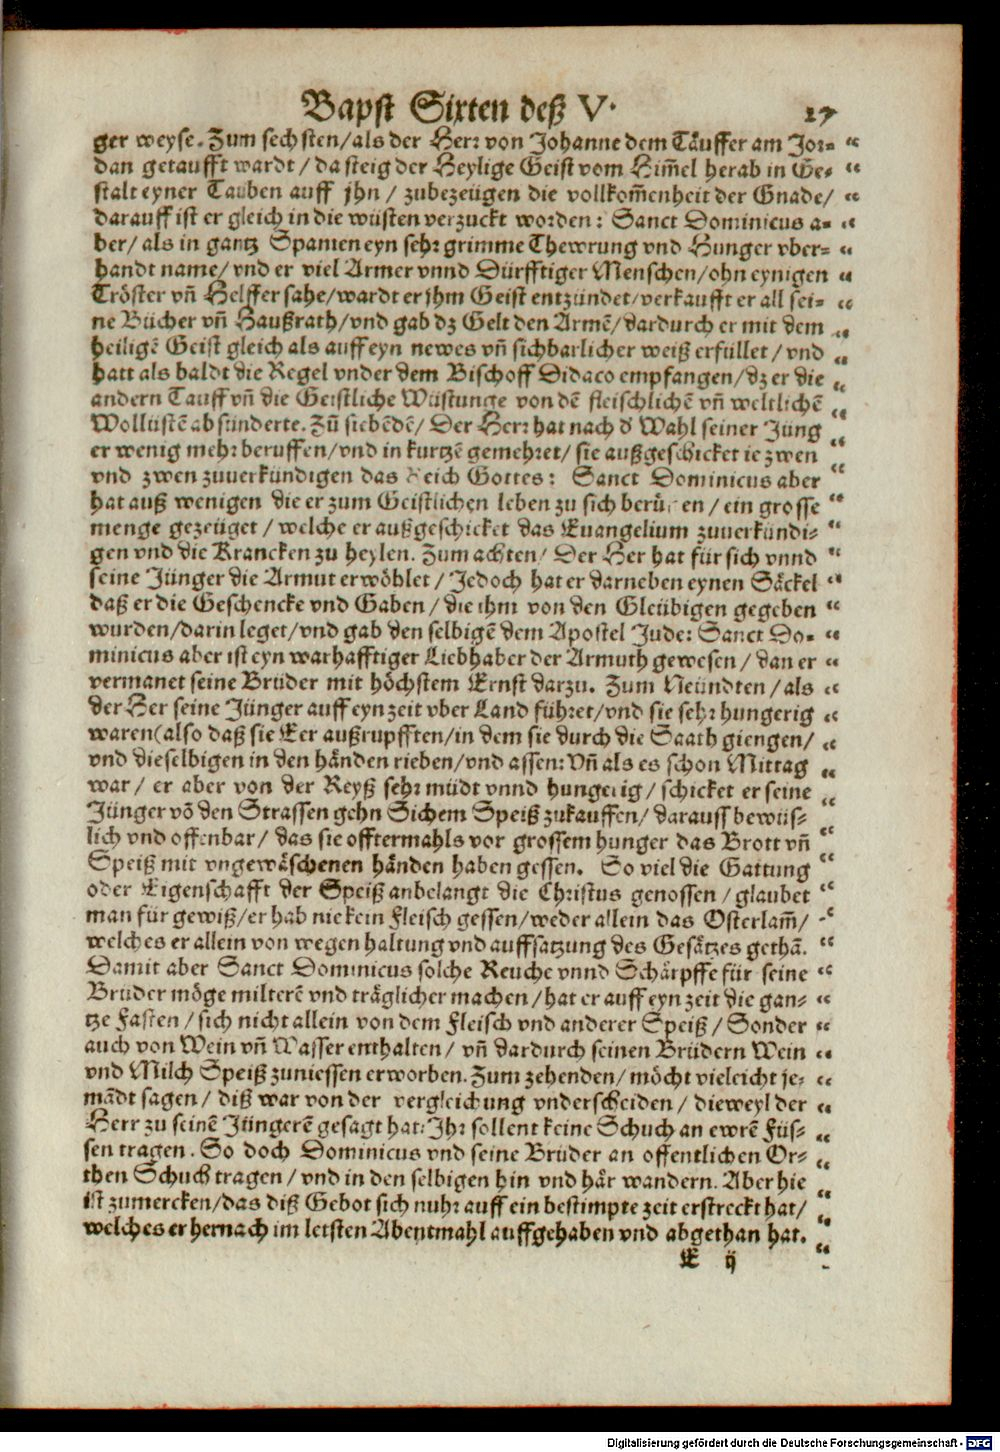 Bapst Sixten deß V. 17
ger weyse. Zum sechsten/als der Herr von Johanne dem Täuffer am Jor= “
dan getaufft wardt / da steig der Heylige Geist vom Him̃el herab in Ge= “
stalt eyner Tauben auff jhn / zubezeügen die vollkom̃enheit der Gnade/ “
darauff ist er gleich in die wüsten verzuckt worden: Sanct Dominicus a= “
ber/ als in gantz Spanien eyn sehr grimme Thewrung vnd Hunger vber= “
handt name/ vnd er viel Armer vnnd Dürfftiger Menschen/ohn eynigen “
Tröster vñ Helffer sahe/wardt er jhm Geist entzündet/verkaufft er all sei= “
ne Bücher vñ Haußrath/vnd gab dz Gelt den Armẽ/dardurch er mit dem “
heiligẽ Geist gleich als auff eyn newes vñ sichbarlicher weiß erfüllet / vnd “
hatt als baldt die Regel vnder dem Bischoff Didaco empfangen/dz er die “
andern Tauff vñ die Geistliche Wüstunge von dẽ fleischlichẽ vñ weltlichẽ “
Wollüstẽ absünderte. Zũ siebẽdẽ/ Der Herr hat nach d' Wahl seiner Jüng “
er wenig mehr beruffen/vnd in kurtzẽ gemehret/ sie außgeschicket ie zwen “
vnd zwen zuuerkündigen das Reich Gottes: Sanct Dominicus aber “
hat auß wenigen die er zum Geistlichen leben zu sich berüffen / ein grosse “
menge gezeüget / welche er außgeschicket das Euangelium zuuerkündi= “
gen vnd die Krancken zu heylen. Zum achten/ Der Her hat für sich vnnd “
seine Jünger die Armut erwöhlet / Jedoch hat er darneben eynen Säckel “
daß er die Geschencke vnd Gaben / die ihm von den Gleübigen gegeben “
wurden/darin leget/vnd gab den selbigẽ dem Apostel Jude: Sanct Do= “
minicus aber ist eyn warhafftiger Liebhaber der Armuth gewesen / dan er “
vermanet seine Brüder mit höchstem Ernst darzu. Zum Neündten / als “
der Her seine Jünger auff eyn zeit vber Land führet/vnd sie sehr hungerig “
waren(also daß sie Eer außrupfften/in dem sie durch die Saath giengen/ “
vnd dieselbigen in den händen rieben/vnd assen: Vñ als es schon Mittag “
war / er aber von der Reyß sehr müdt vnnd hungerig / schicket er seine “
Jünger võ den Strassen gehn Sichem Speiß zukauffen/ darauss bewüs= “
lich vnd offenbar / das sie offtermahls vor grossem hunger das Brott vñ “
Speiß mit vngewäschenen händen haben gessen. So viel die Gattung “
oder Eigenschafft der Speiß anbelangt die Christus genossen / glaubet “
man für gewiß/er hab nie kein Fleisch gessen/weder allein das Osterlam̃/ “
welches er allein von wegen haltung vnd auffsatzung des Gesätzes gethã. “
Damit aber Sanct Dominicus solche Reuche vnnd Schärpffe für seine “
Brüder möge milterẽ vnd träglicher machen / hat er auff eyn zeit die gan= “
tze Fasten / sich nicht allein von dem Fleisch vnd anderer Speiß / Sonder “
auch von Wein vñ Wasser enthalten / vñ dardurch seinen Brüdern Wein “
vnd Milch Speiß zuniessen erworben. Zum zehenden/ möcht vieleicht je= “
mãdt sagen / diß war von der vergleichung vnderscheiden / dieweyl der “
Herr zu seinẽ Jüngerẽ gesagt hat: Ihr sollent keine Schuch an ewrẽ Füs= “
sen tragen. So doch Dominicus vnd seine Brüder an offentlichen Or= “
then Schuch tragen / vnd in den selbigen hin vnd här wandern. Aber hie “
ist zumercken/das diß Gebot sich nuhr auff ein bestimpte zeit erstreckt hat/ “
welches er hernach im letsten Abentmahl auffgehaben vnd abgethan hat. “
E ij
Digitalisierung gefördert durch die Deutsche Forschungsgemeinschaft - DFG